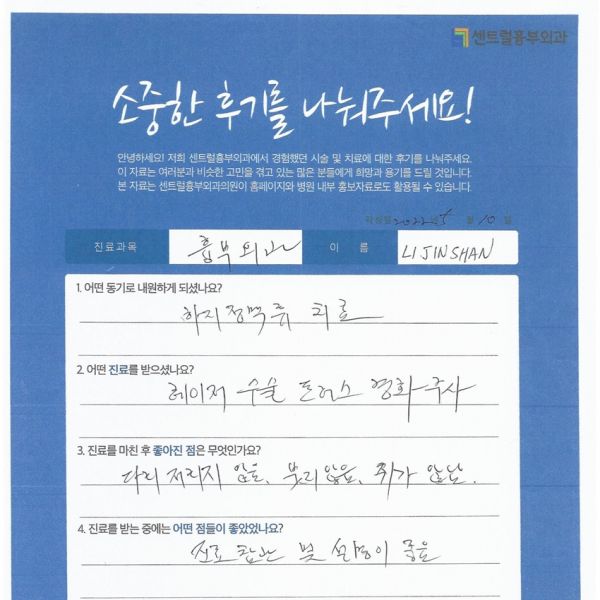 센트럴흉부외과
소중한 후기를 나눠주세요!
안녕하세요! 저희 센트럴흉부외과에서 경험했던 시술 및 치료에 대한 후기를 나눠주세요.
이 자료는 여러분과 비슷한 고민을 겪고 있는 많은 분들에게 희망과 용기를 드릴 것입니다.
본 자료는 센트럴흉부외과의원이 홈페이지와 병원 내부 홍보자료로도 활용될 수 있습니다.
작성일 2022년 5 월 10 일
진료과목 흉부외과 이 름 LI JINSHAN
1. 어떤 동기로 내원하게 되셨나요?
하지정맥류 치료
2. 어떤 진료를 받으셨나요?
레이저 수술 경화 주사
3. 진료를 마친 후 좋아진 점은 무엇인가요?
다리 저리지 않음, 붓지 않음, 쥐가 안남.
4. 진료를 받는 중에는 어떤 점들이 좋았었나요?
및 설명이 좋음